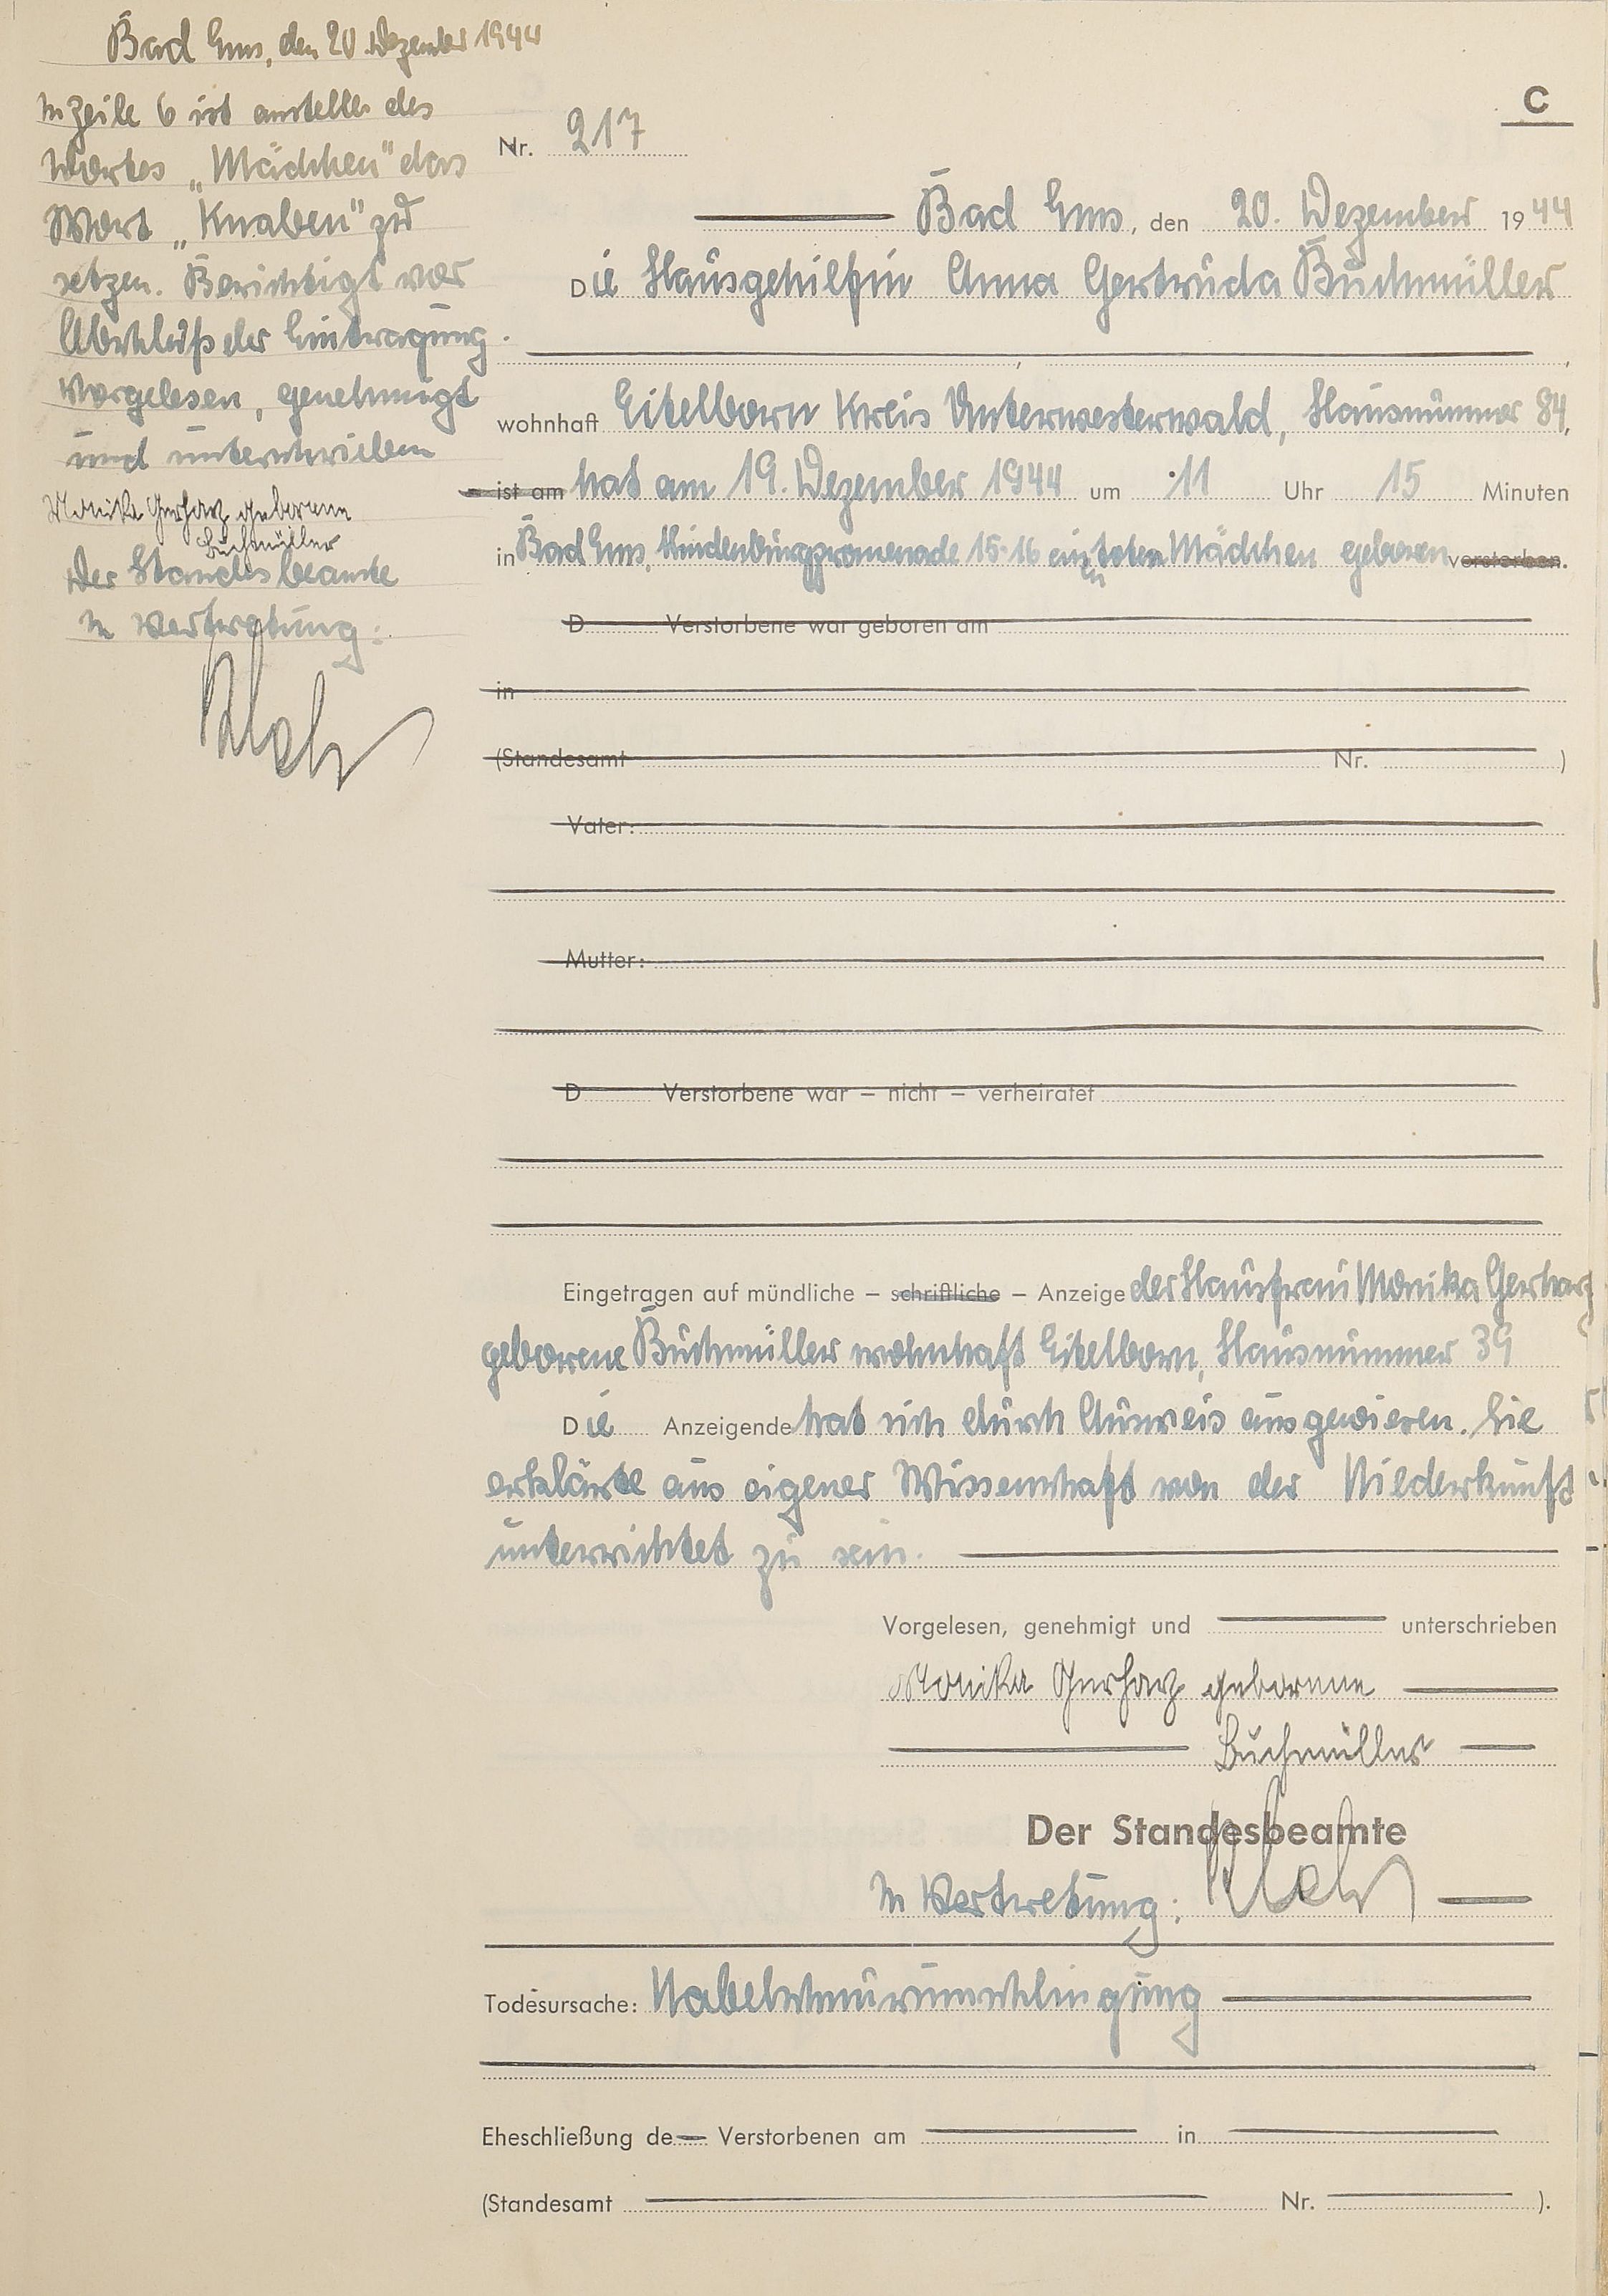 Bad Ems, den 20. Dezember 1944
In Zeile 6 ist anstelle des
Wortes „Mädchen" das
Wort „Knaben" zu
setzen. Berichtigt vor
Abschluß der Eintragung.
Vorgelesen, genehmigt
und unterschrieben
Monika Gerharz geborene
Buchmüller
Der Standesbeamte
In Vertretung:
C
Nr. 217
Bad Ems, den 20. Dezember 1944
Die Hausgehilfin Anna Gertruda Buchmüller
wohnhaft Eitelborn Kreis Unterwesterwald, Hausnummer 84,
ist am hat am 19. Dezember 1944 um 11 Uhr 15 Minuten
in Bad Ems, Hindenburgpromenade 15-16 einen toten Mädchen geboren verstorben.
D Verstorbene war geboren am
in
(Standesamt Nr. )
Vater:
Mutter:
D Verstorbene war – nicht – verheiratet
Eingetragen auf mündliche – schriftliche – Anzeige der Hausfrau Monika Gerharz
geborene Buchmüller wohnhaft Eitelborn, Hausnummer 39
Die Anzeigende hat sich durch Ausweis ausgewiesen. Sie
erklärte aus eigener Wissenschaft von der Niederkunft
unterrichtet zu sein.
Vorgelesen, genehmigt und unterschrieben
Monika Gerharz geborene
Buchmüller
Der Standesbeamte
In Vertretung:
Todesursache: Nabelschnurumschlingung
Eheschließung de Verstorbenen am in
(Standesamt Nr. ).